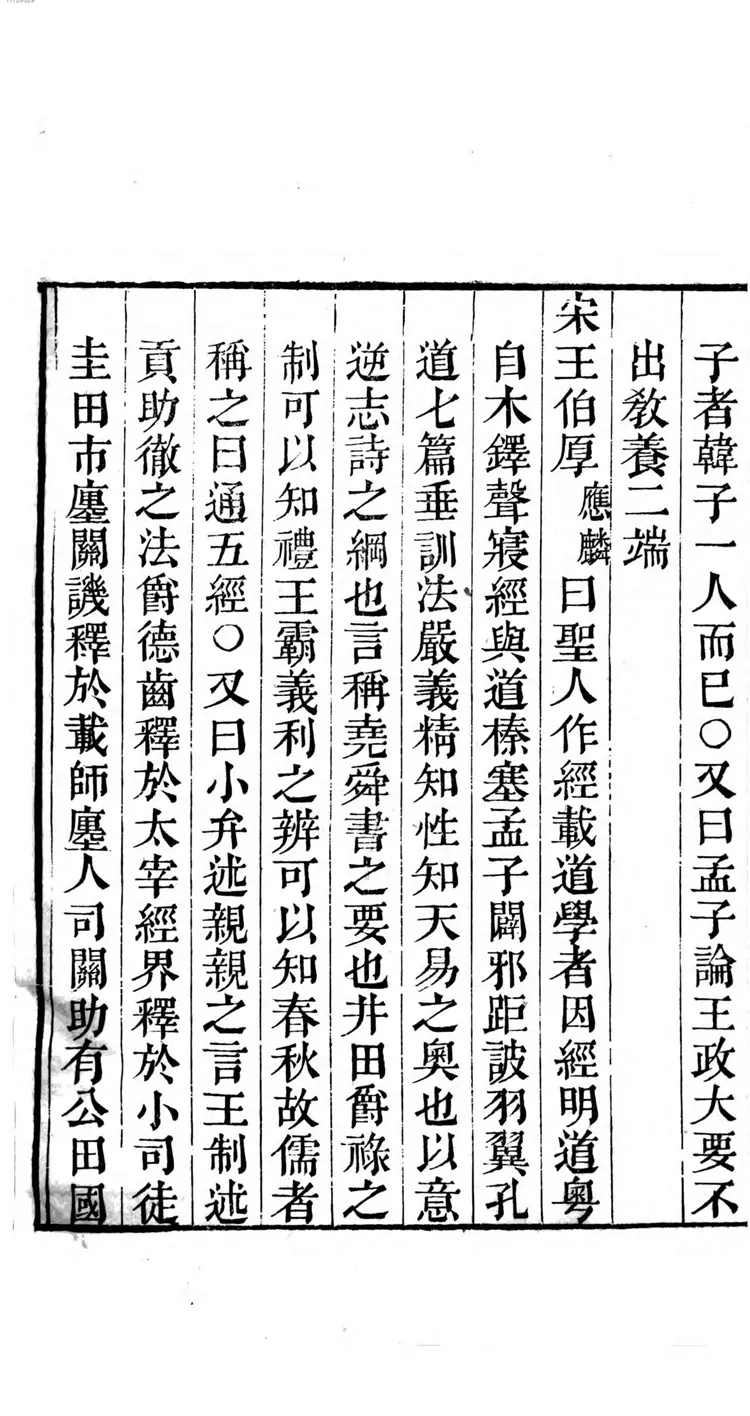 子者韓子一人而已○又曰孟子論王政大要不
出敎養二端
宋王伯厚應麟曰聖人作經載道學者因經明道粤
自木鐸聲寢經與道榛塞孟子闢邪距詖羽翼孔
道七篇垂訓法嚴義精知性知天易之奧也以意
逆志詩之綱也言稱堯舜書之要也井田爵祿之
制可以知禮王霸義利之辨可以知春秋故儒者
稱之曰通五經○又曰小弁述親親之言王制述
貢助徹之法爵德齒釋於太宰經界釋於小司徒
圭田市廛關譏釋於載師廛人司關助有公田國